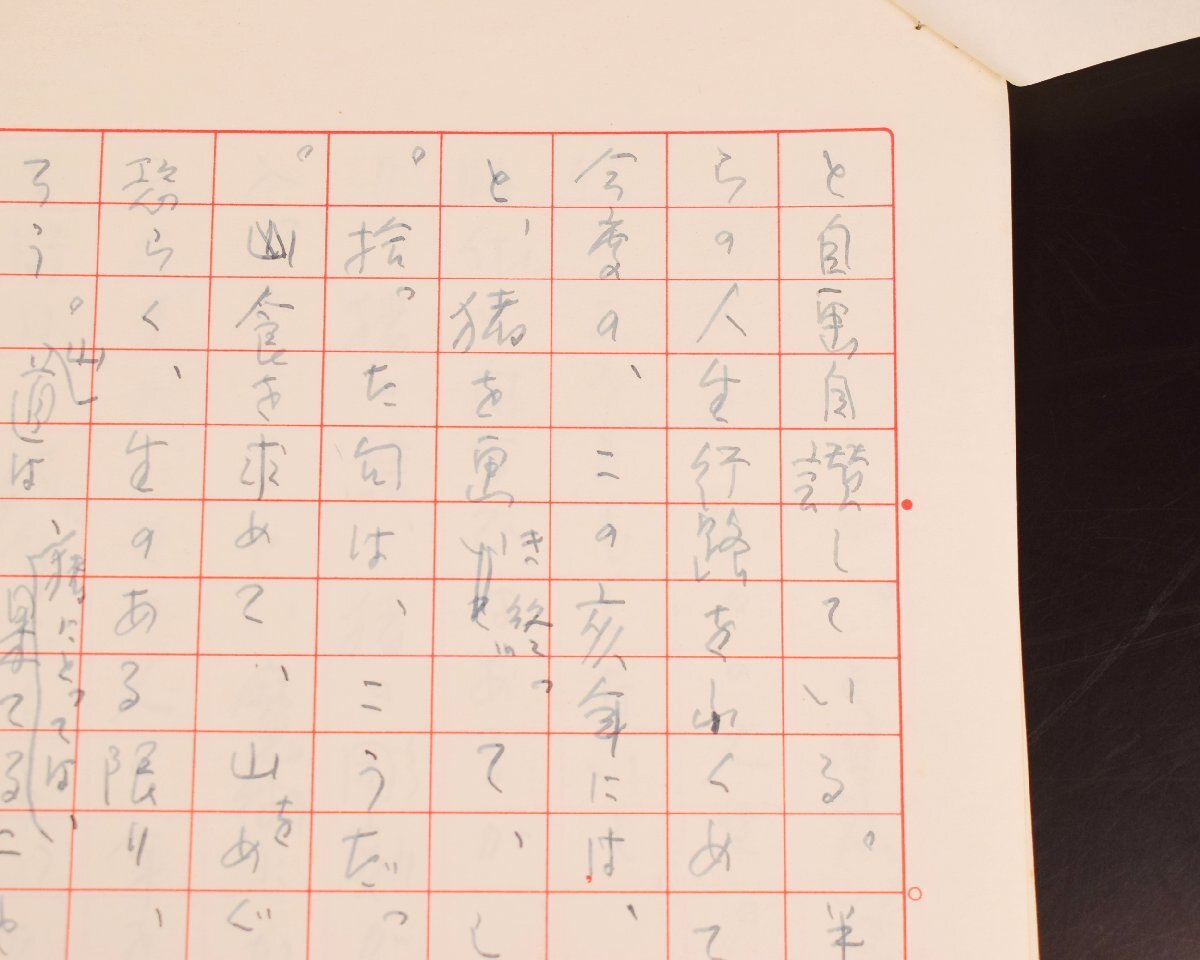 と自画自讃している。半
らの人生行路をふくめて
今度の、この亥年には、
と、猪を画き終って、し
。拾った句は、こうだっ
。山食を求めて、山をめぐ
恐らく、生のある限り、
ろう。道は、猪にとっては、果てるこ